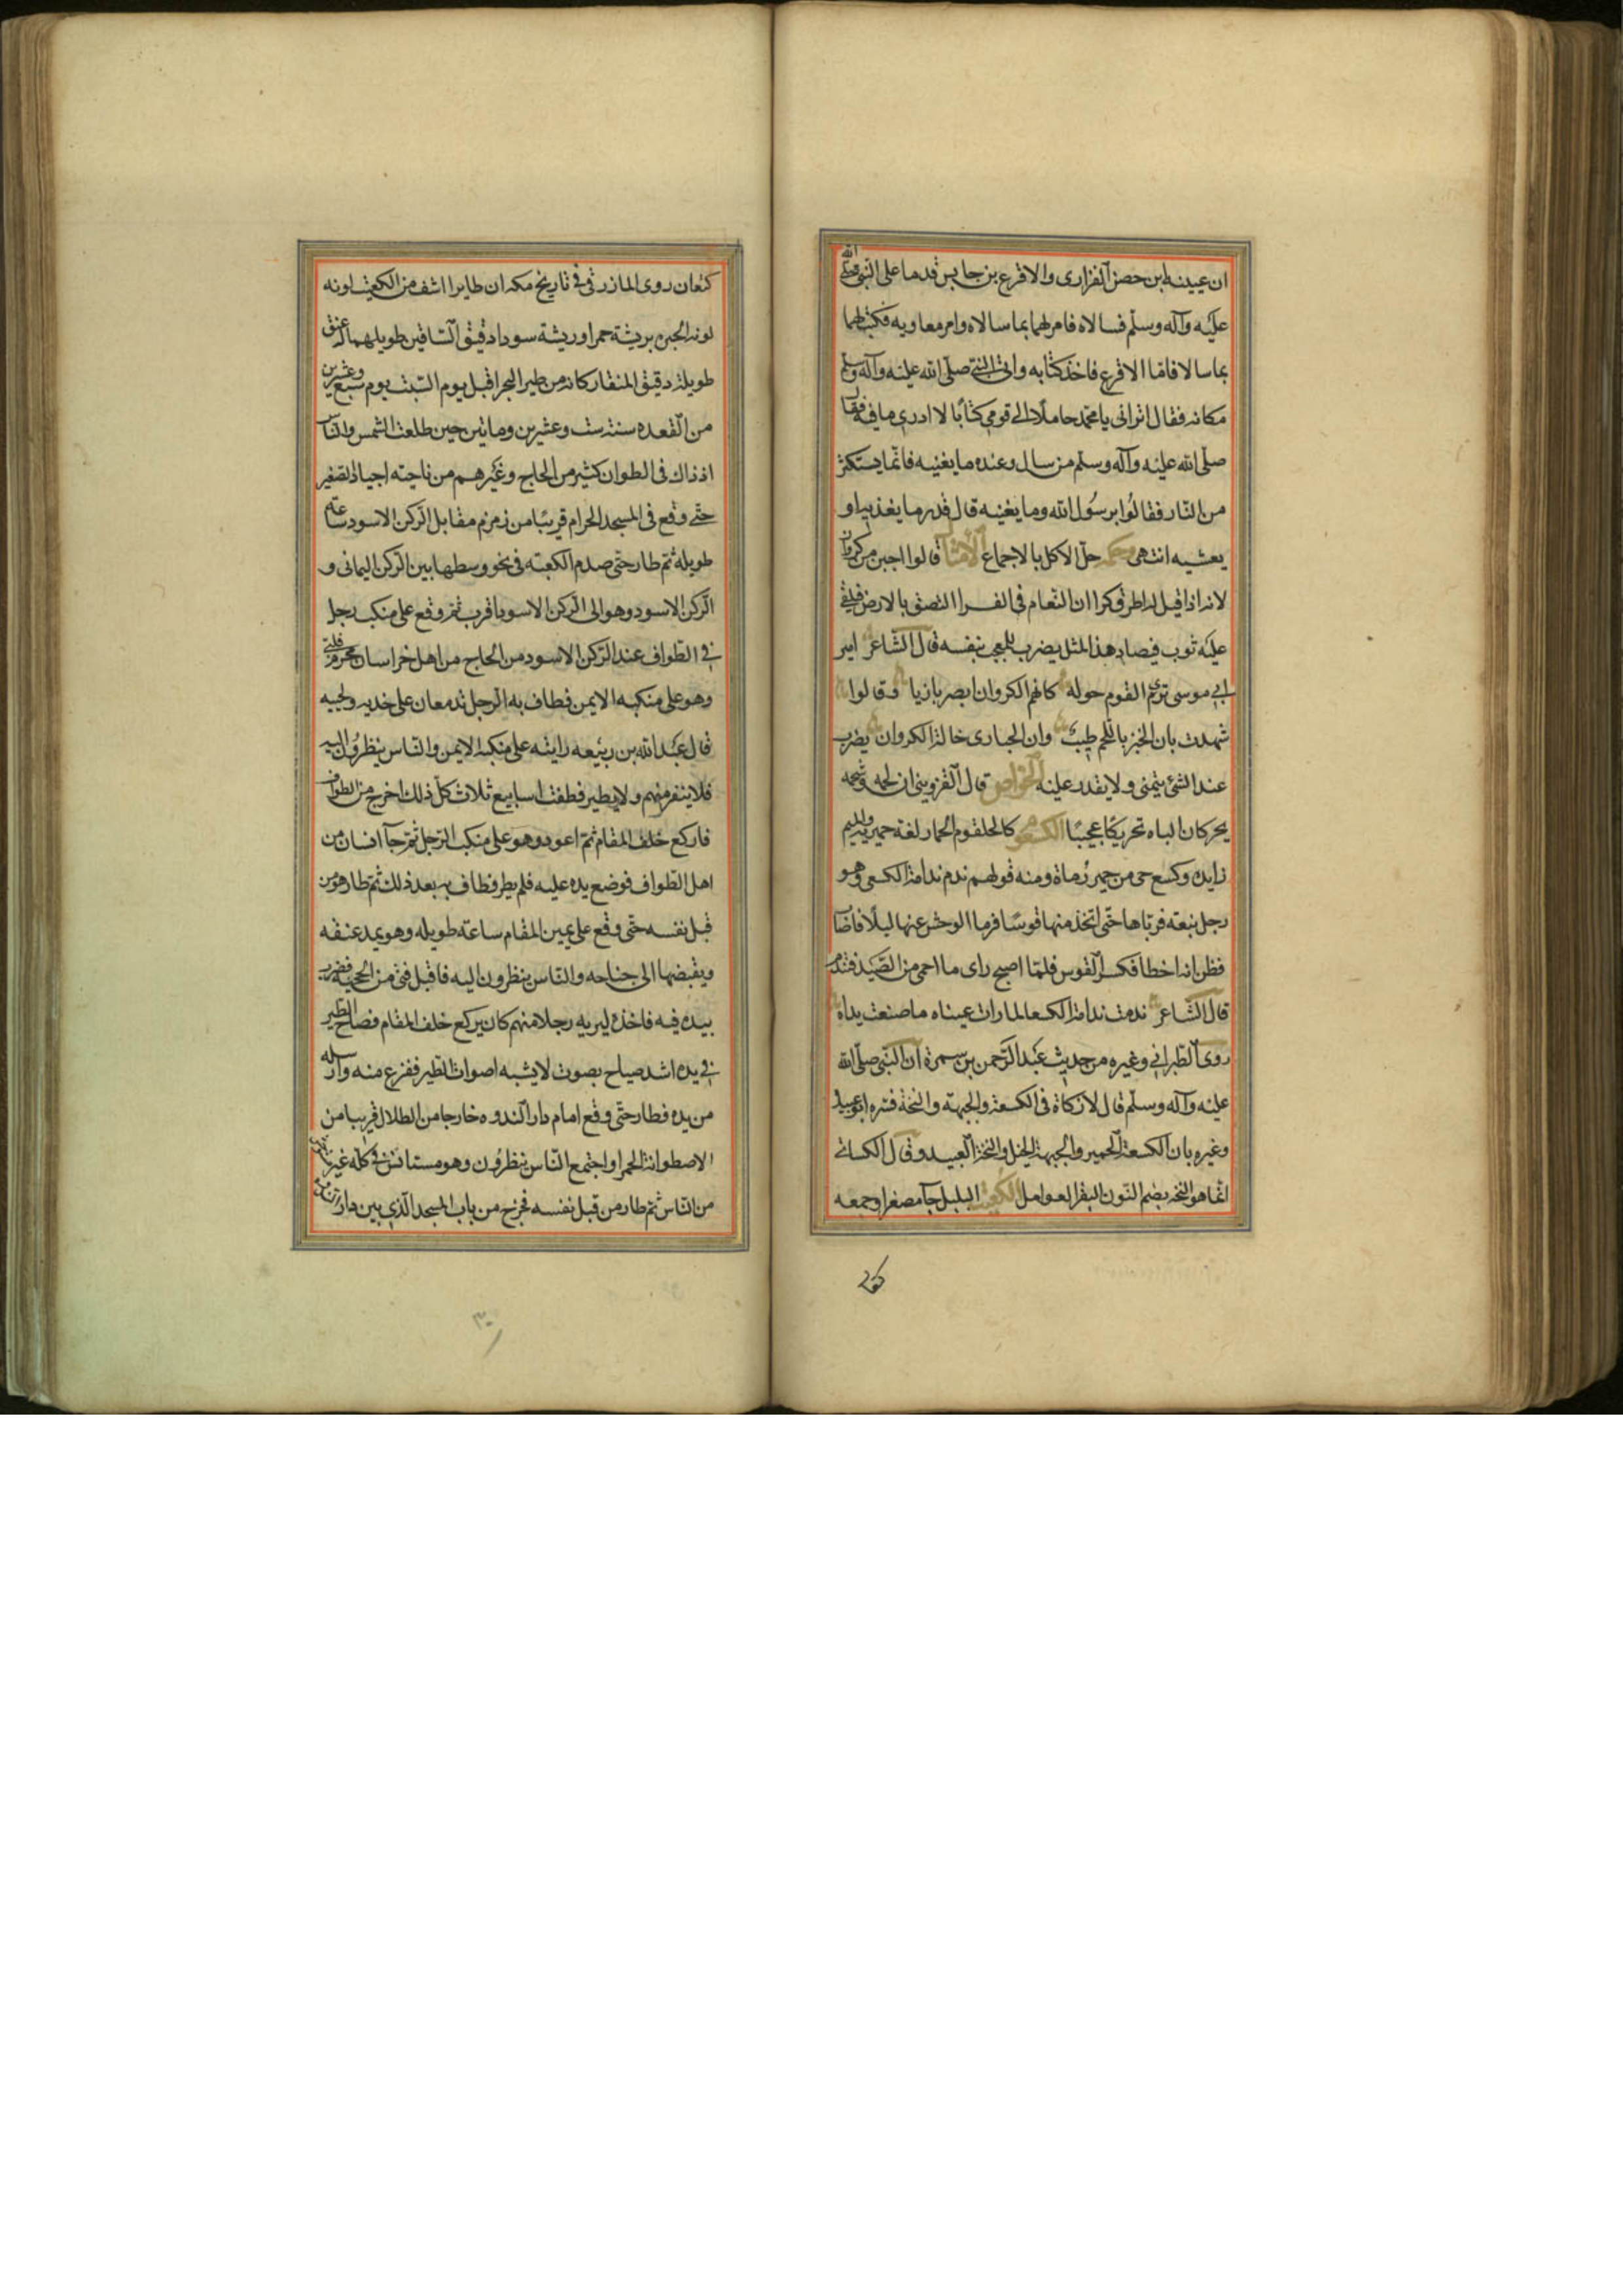 ان عيينة ابن حصن الفزارى والاقرع بن حابس قدما على النبى صلى الله
عليه وآله وسلم فسالاه فامر لهما بما سالاه وامر معاويه فكتب لهما
بما سالا فاما الاقرع فاخذ كتابه واتى النبى صلى الله عليه وآله وسلم
مكانه فقال اترانى يا محمد حاملا الى قومى كتابا لا ادرى ما فيه فقال
صلى الله عليه وآله وسلم من سال وعنده ما يغنيه فانما يستكثر
من النار فقالوا يرسول الله وما يغنيه قال قدر ما يغذيه او
يعشيه انتهى وحكمه حل الاكل بالاجماع الامثال قالوا اجبن من كروان
لانه اذا قيل له اطرق كرا ان النعام فى القرا التصق بالارض فيلقى
عليه ثوب فيصاد هذا المثل يضرب للمعجب بنفسه قال الشاعر امير
ابى موسى ترى القوم حوله كانهم الكروان ابصر بازيا وقالوا
شهدت بان الخبز باللحم طيب وان الحبارى خالة الكروان يضرب
عند الشئ يتمنى ولا يقدر عليه الخواص قال القزوينى ان لحمه وشحمه
يحركان الباه تحريكا عجيبا الكسعوم كالحلقوم الحمار لغة حميريه والميم
زايده وكسع حى من حمير رماة ومنه قولهم ندم ندامة الكسعى وهو
رجل نبعة فرباها حتى اتخذ منها قوسا فرما الوحش عنها ليلا فاصاب
فظن انه اخطا فكسر القوس فلما اصبح راى ما احمى من الصيد فندم
قال الشاعر ندمت ندامة الكسعى لما رات عيناه ما صنعت يداه
روى الطبرانى وغيره من حديث عبد الرحمن بن سمرة ان النبى صلى الله
عليه وآله وسلم قال لا زكاة فى الكسعة والجبهة والنخة فسره ابو عبيد
وغيره بان الكسعة الحمير والجبهة الخيل والنخة العبيد وقال الكسائى
انما هو النخه بضم النون البقر العوامل الكعيت البلبل جآ مصغرا وجمعه
كعتان
كعتان روى المازرقى فى تاريخ مكه ان طايرا اشف من الكعيت لونه
لونه الحبره بريشة حمرا وريشة سودا دقيق الساقين طويلهما له عنق
طويلة دقيق المنقار كانه من طير البحر اقبل يوم السبت يوم سبع وعشرين
من القعده سنة ست وعشرين وماتين حين طلعت الشمس والناس
اذ ذاك فى الطواف كثير من الحاج وغيرهم من ناحيته اجياد الصغير
حتى وقع فى المسجد الحرام قريبا من زمزم مقابل الركن الاسود ساعة
طويله ثم طار حتى صدم الكعبة فى نحو وسطها بين الركن اليمانى و
الركن الاسود وهو الى الركن الاسود اقرب ثم وقع على منكب رجل
فى الطواف عند الركن الاسود من الحاج من اهل خراسان محرم
وهو على منكبه الايمن فطاف به الرجل تدمعان على خديه ولحيه
قال عبد الله بن ربيعه رايته على منكبه الايمن والناس ينظرون اليه
فلا ينفر منهم ولا يطير فطفت اسابيع ثلاث كل ذلك اخرج من الطواف
فاركع خلف المقام ثم اعود وهو على منكب الرجل ثم جآ انسان من
اهل الطواف فوضع يده عليه فلم يطر فطاف به بعد ذلك ثم طار هو من
قبل نفسه حتى وقع على يمين المقام ساعة طويله وهو يمد عنقه
ويقبضها الى جناحه والناس ينظرون اليه فاقبل فتى من الحجبه فضرب
بيده فيه فاخذه ليريه رجلا منهم كان يركع خلف المقام فصاح الطير
فى يده اشد صياح بصوت لا يشبه اصوات الطير ففزع منه وارسله
من يده فطار حتى وقع امام دار الندوه خارجا من الظلال قريبا من
الاصطوانة الحمرا واجتمع الناس ينظرون وهو مستانس فى كله غير
من الناس ثم طار من قبل نفسه فخرج من باب المسجد الذى بين دار